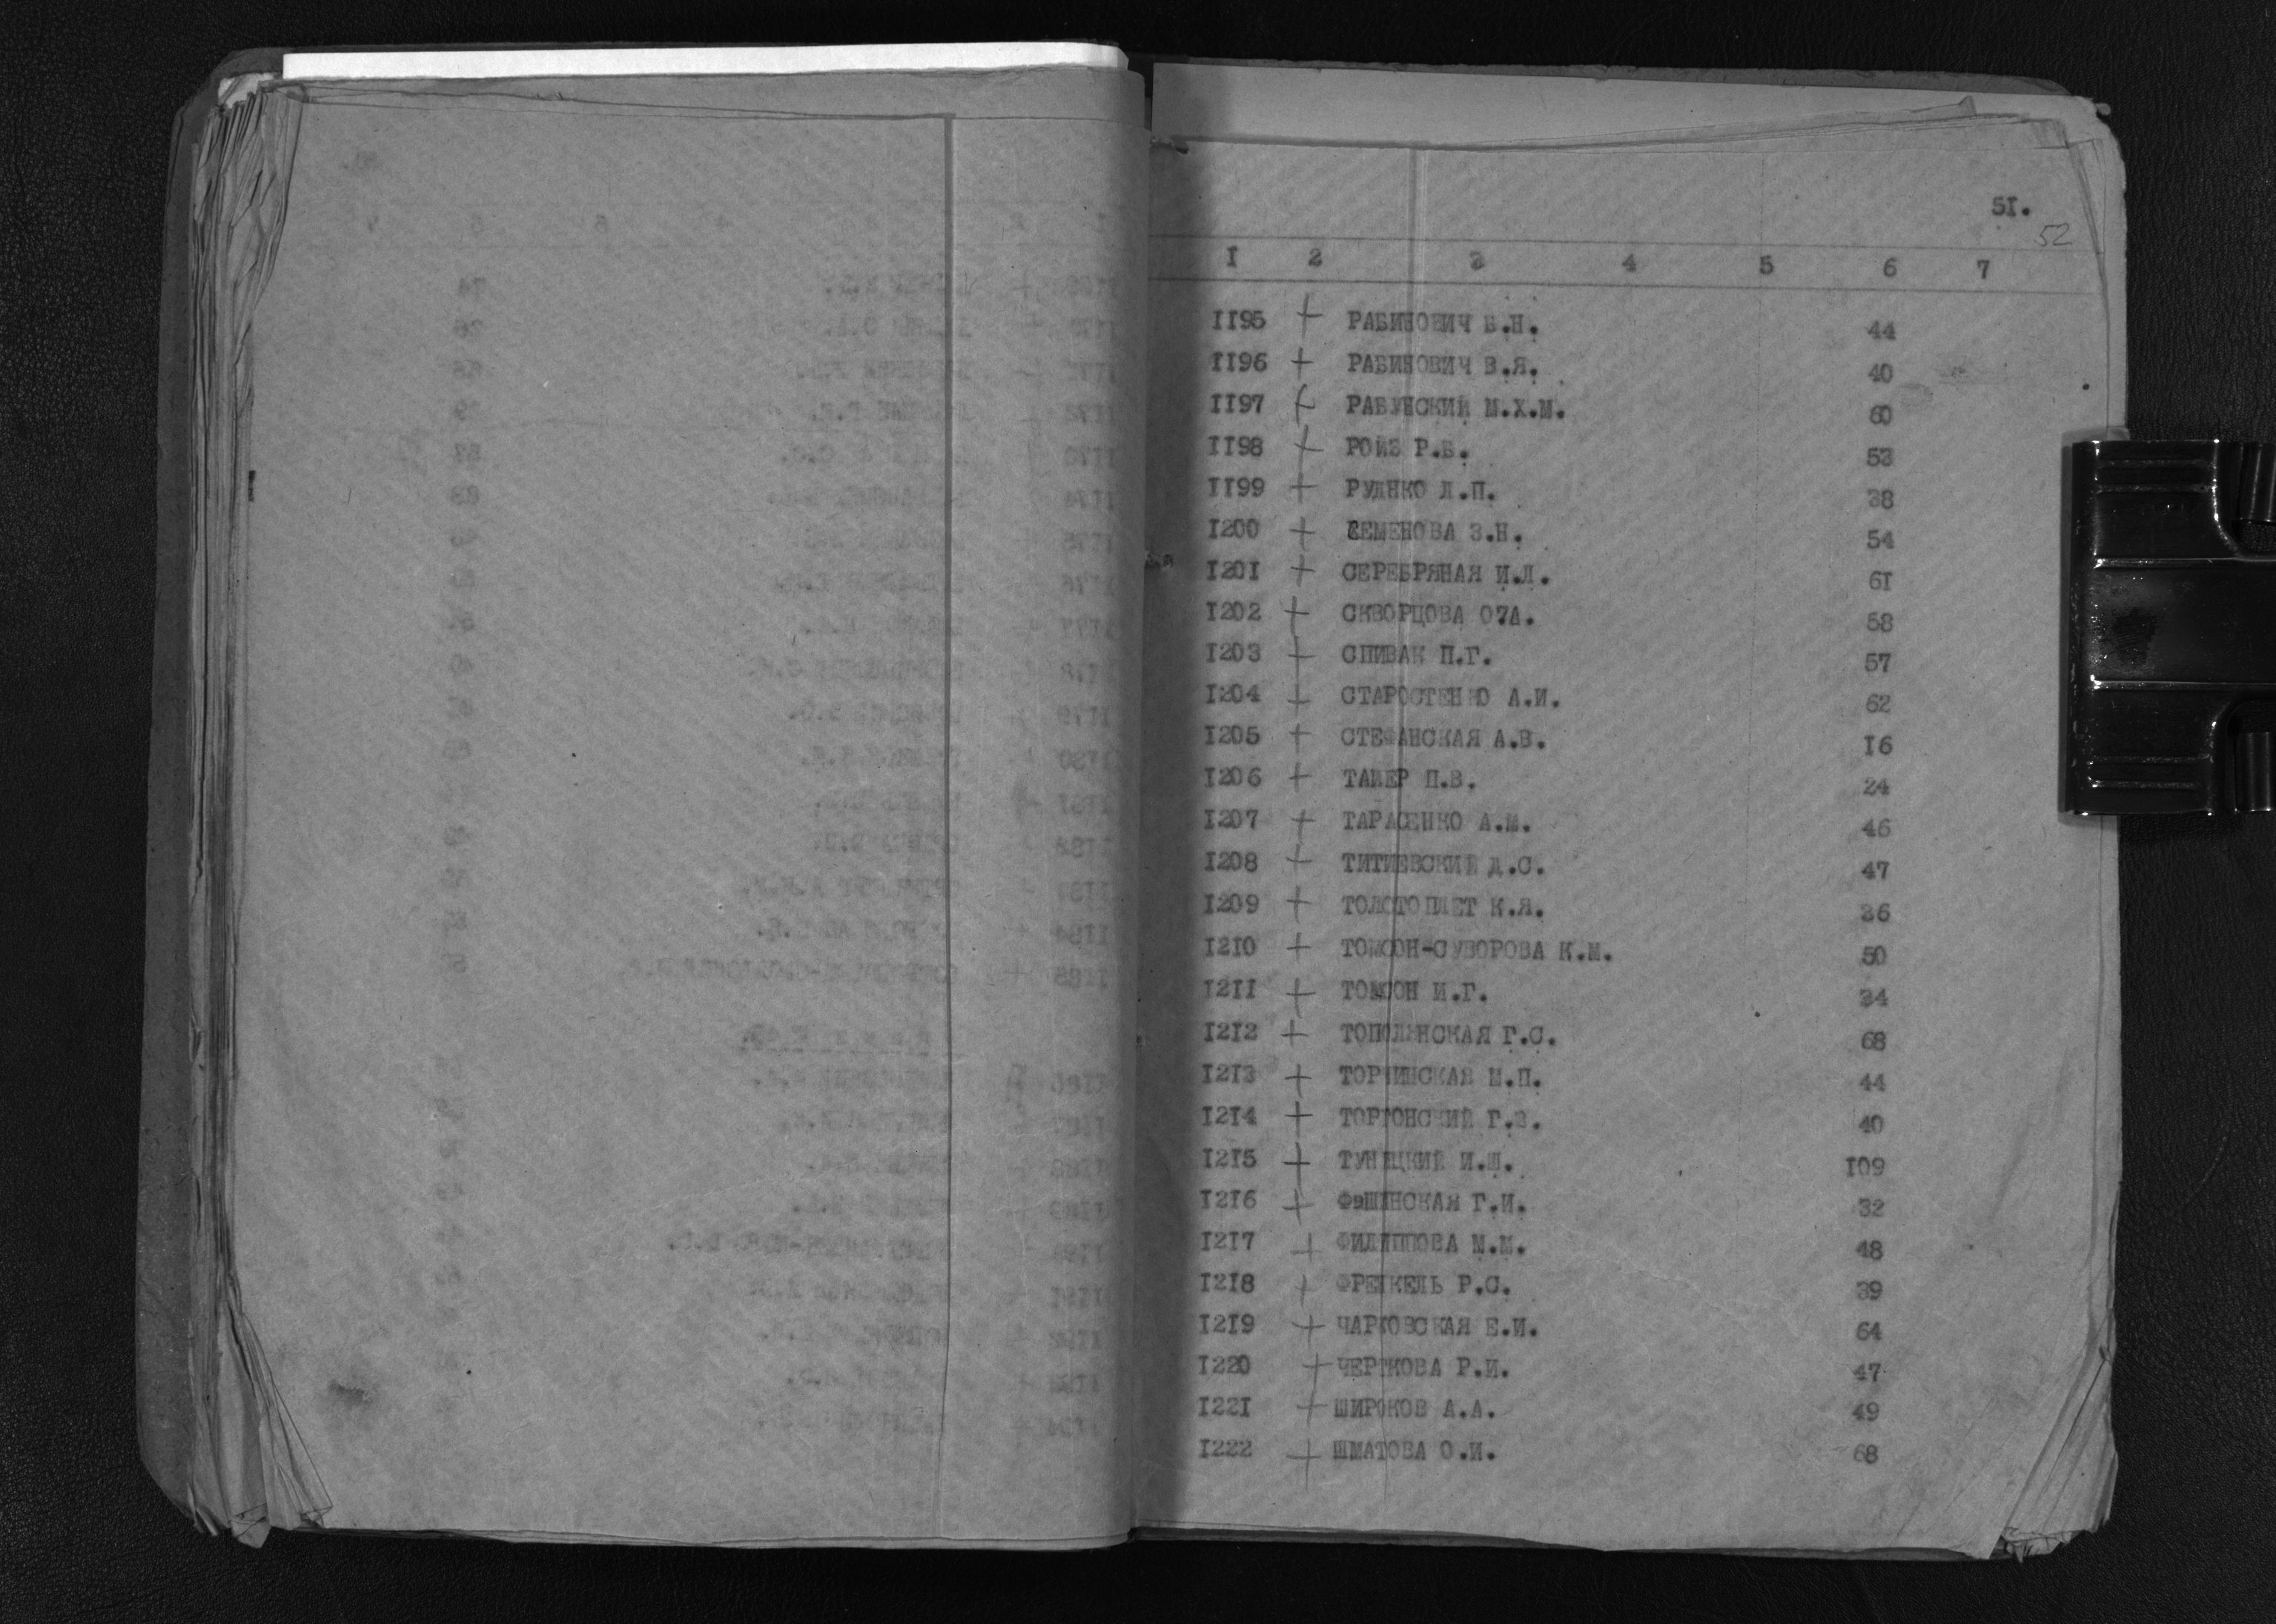 51.
52
I 2 3 4 5 6 7
II95 + РАБИНОВИЧ Б.Н. 44
II96 + РАБИНОВИЧ В.Я. 40
II97 + РАБУНСКИЙ М.Х.М. 60
II98 + РОЙЗ Р.Б. 53
II99 + РУДНКО Л.П. 38
I200 + СЕМЕНОВА З.Н. 54
I20I + СЕРЕБРЯНАЯ И.Л. 6I
I202 + СКВОРЦОВА О7А. 58
I203 + СПИВАК П.Г. 57
I204 + СТАРОСТЕНКО А.И. 62
I205 + СТЕФАНСКАЯ А.В. I6
I206 + П.В. 24
I207 + ТАРАСЕНКО А.М. 46
I208 + ТИТИЕВСКИЙ Д.С. 47
I209 + ТОЛОТОПЯЕТ К.Я. 36
I2I0 + ТОМСОН-СУВОРОВА К.М. 50
I2II + ТОМСОН И.Г. 34
I2I2 + ТОПОЛЯНСКАЯ Г.С. 68
I2I3 + ТОРЧИНСКАЯ М.П. 44
I2I4 + ТОРГОНСКИЙ Г.З. 40
I2I5 + ТУНИЦКИЙ И.Ш. I09
I2I6 + ФэШИНСКАЯ Г.И. 32
I2I7 + ФИЛИППОВА М.М. 48
I2I8 + ФРЕНКЕЛЬ Р.С. 39
I2I9 + ЧАРКОВСКАЯ Е.И. 64
I220 + ЧЕРТКОВА Р.И. 47
I22I + ШИРОКОВ А.А. 49
I222 + ШМАТОВА О.И. 68